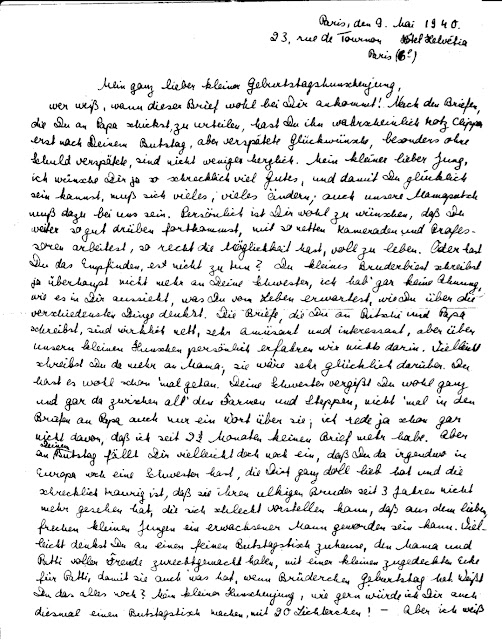 Paris, den 9. Mai 1940.
23, rue de Tournon Hôtel Helvétia
Paris (6e)
Mein ganz lieber kleiner Geburtstagshunschenjung,
wer weiß, wann dieser Brief wohl bei Dir ankommt! Nach den Briefen,
die Du an Papa schickst, zu urteilen, hast Du ihn wahrscheinlich trotz Clipper
erst nach Deinem Butstag, aber verspätete Glückwünsche, besonders ohne
Schuld verspätete, sind nicht weniger herzlich. Mein kleiner lieber Jung,
ich wünsche Dir ja so schrecklich viel Gutes, und damit Du glücklich
sein kannst, muß sich vieles, vieles ändern; auch unsere Mamaputsch
muß dazu bei uns sein. Persönlich ist Dir wohl zu wünschen, daß Du
weiter so gut drüben fortkommst, mit so netten Kameraden und Profes-
soren arbeitest, so recht die Möglichkeit hast, voll zu leben. Oder hast
Du das Empfinden, es nicht zu tun? Du kleines Bruderbiest schreibst
ja überhaupt nicht mehr an Deine Schwester, ich hab' gar keine Ahnung,
wie es in Dir aussieht, was Du vom Leben erwartest, wie Du über die
verschiedensten Dinge denkst. Die Briefe, die Du an Putschi und Papa
schreibst, sind wirklich nett, sehr amüsant und interessant, aber über
unsern kleinen Hunschen persönlich erfahren wir nichts darin. Vielleicht
schreibst Du da mehr an Mama, sie wäre sehr glücklich darüber. Du
hast es wohl schon 'mal getan. Deine Schwester vergißt Du wohl ganz
und gar da zwischen all' den Farmen und Steppen, nicht 'mal in den
Briefen an Papa auch nur ein Wort über sie; ich rede ja schon gar
nicht davon, daß ich seit 2½ Monaten keinen Brief mehr habe. Aber
an Deinem Butstag fällt Dir vielleicht doch noch ein, daß Du da irgendwo in
Europa noch eine Schwester hast, die Dich ganz doll lieb hat und die
schrecklich traurig ist, daß sie ihren ulkigen Bruder seit 3 Jahren nicht
mehr gesehen hat, die sich schlecht vorstellen kann, daß aus dem lieben,
frechen kleinen Jungen ein erwachsener Mann geworden sein kann. Viel-
leicht denkst Du an einen feinen Butstagstisch zuhause, den Mama und
Patti voller Freude zurechtgemacht haben, mit einer kleinen zugedeckten Ecke
für Patti, damit sie auch was hat, wenn Brüderchen Geburtstag hat. Weißt
Du das alles noch? Mein kleiner Hunschenjung, wie gern würde ich Dir auch
diesmal einen Butstagstisch machen, mit 20 Lichterchen! – Aber ich weiß